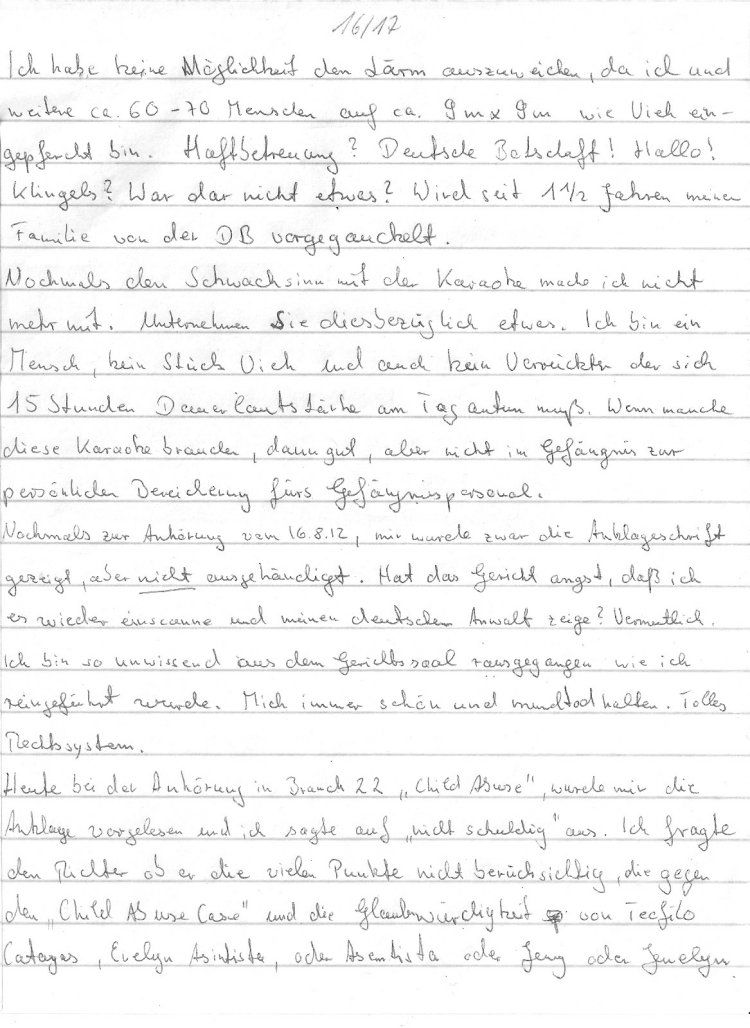 16/17
Ich habe keine Möglichkeit den Lärm auszuweichen, da ich und
weitere ca. 60-70 Menschen auf ca. 9m x 9m wie Vieh ein-
gepfercht bin. Haftbetreuung? Deutsche Botschaft! Hallo!
Klingels? War dar nicht etwas? Wird seit 1 1/2 Jahren meinen
Familie von der DB vorgegauckelt.
Nochmals den Schwachsinn mit der Karaoke mache ich nicht
mehr mit. Unternehmen Sie diesbezüglich etwas. Ich bin ein
Mensch, kein Stück Vieh und auch kein Verrückter der sich
15 Stunden Dauerlautstärke am Tag antun muß. Wenn manche
diese Karaoke brauchen, dann gut, aber nicht im Gefängnis zur
persönlichen Bereicherung fürs Gefängnispersonal.
Nochmals zur Anhörung vom 16.8.12, mir wurde zwar die Anklageschrift
gezeigt, aber nicht ausgehändigt. Hat das Gericht angst, daß ich
es wieder einscanne und meinen deutschen Anwalt zeige? Vermutlich.
Ich bin so unwissend aus dem Gerichtssaal rausgegangen wie ich
reingeführt wurde. Mich immer schön und mundtod halten. Tolles
Rechtssystem.
Heute bei der Anhörung in Branch 22 „Child Abuse", wurde mir die
Anklage vorgelesen und ich sagte auf „nicht schuldig" aus. Ich fragte
den Richter ob er die vielen Punkte nicht berücksichtig, die gegen
den „Child Abuse Case" und die Glaubwürdigkeit von Teofilo
Catagas, Evelyn Asintista, oder Asentista oder Jeny oder Jenelyn